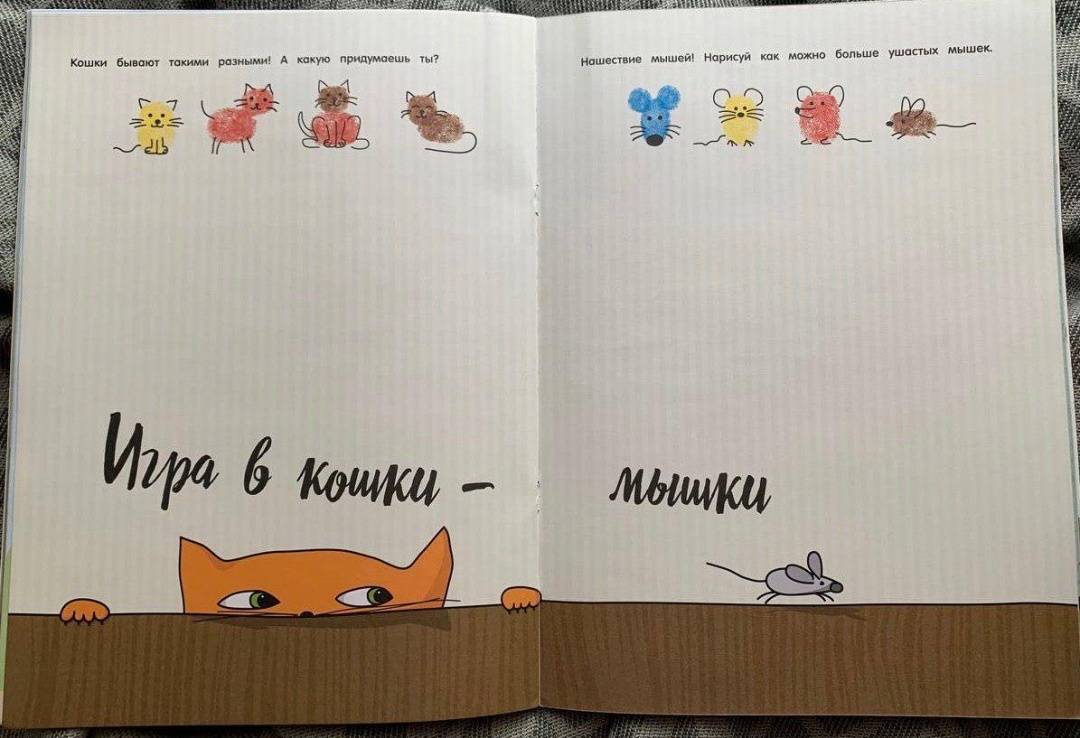 Кошки бывают такими разными! А какую придумаешь ты?
Нашествие мышей! Нарисуй как можно больше ушастых мышек.
Игра в кошки – мышки